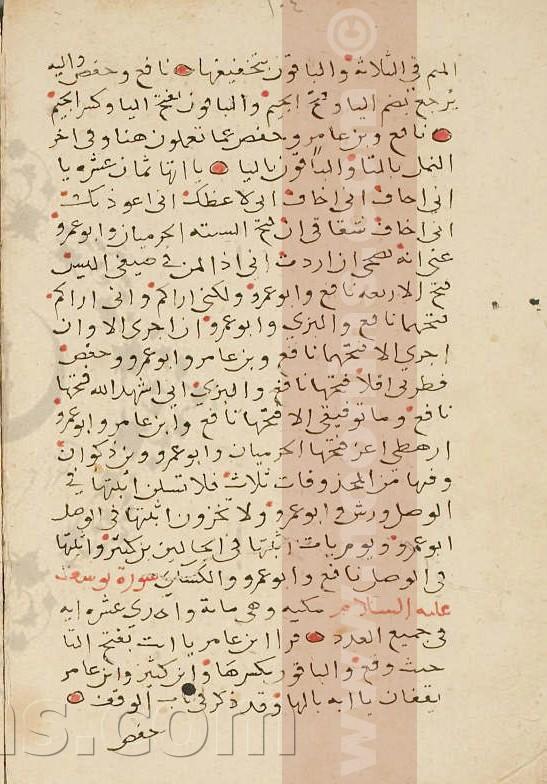 الميم في الثلاثة والباقون بتخفيفها نافع وحفص واليه
يرجع بضم اليا وفتح الجيم والباقون بفتح اليا وكسر الجيم
نافع وبن عامر وحفص عما تعملون هنا وفي اخر
النمل بالتا والباقون باليا يااتها ثمان عشره يا
اني اخاف اني اخاف اني لاعظك اني اعوذ بك
اني اخاف شقاقي ان فتح السته الحرميان وابو عمرو
عني انه نصحي ان اردت اني اذا لمن في ضيفي اليس
فتح الاربعه نافع وابو عمرو ولكني اراكم واني اراكم
فتحهما نافع والبزي وابو عمرو ان اجري الا وان
اجري الا فتحهما نافع وبن عامر وابو عمرو وحفص
فطرني افلا فتحها نافع والبزي اني اشهد الله فتحها
نافع وما توفيقي الا فتحها نافع وابن عامر وابو عمرو
ارهطي اعز فتحها الحرميان وابو عمرو وبن ذكوان
وفيها من المحذوفات ثلاث فلا تسلن اثبتها في
الوصل ورش وابو عمرو ولا تخزون اثبتها في الوصل
ابو عمرو ويوم يات اثبتها في الحالين بن كثير واثبتها
في الوصل نافع وابو عمرو والكسائي سورة يوسف
عليه السلام مكيه وهي مائة واحدي عشره ايه
في جميع العدد قرا ابن عامر ياابت بفتح التا
حيث وقع والباقون بكسرها وابن كثير وابن عامر
يقفان ياابه بالها وقد ذكر في باب الوقف
حفص